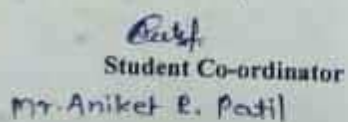 Student Co-ordinator
Mr. Aniket R. Patil